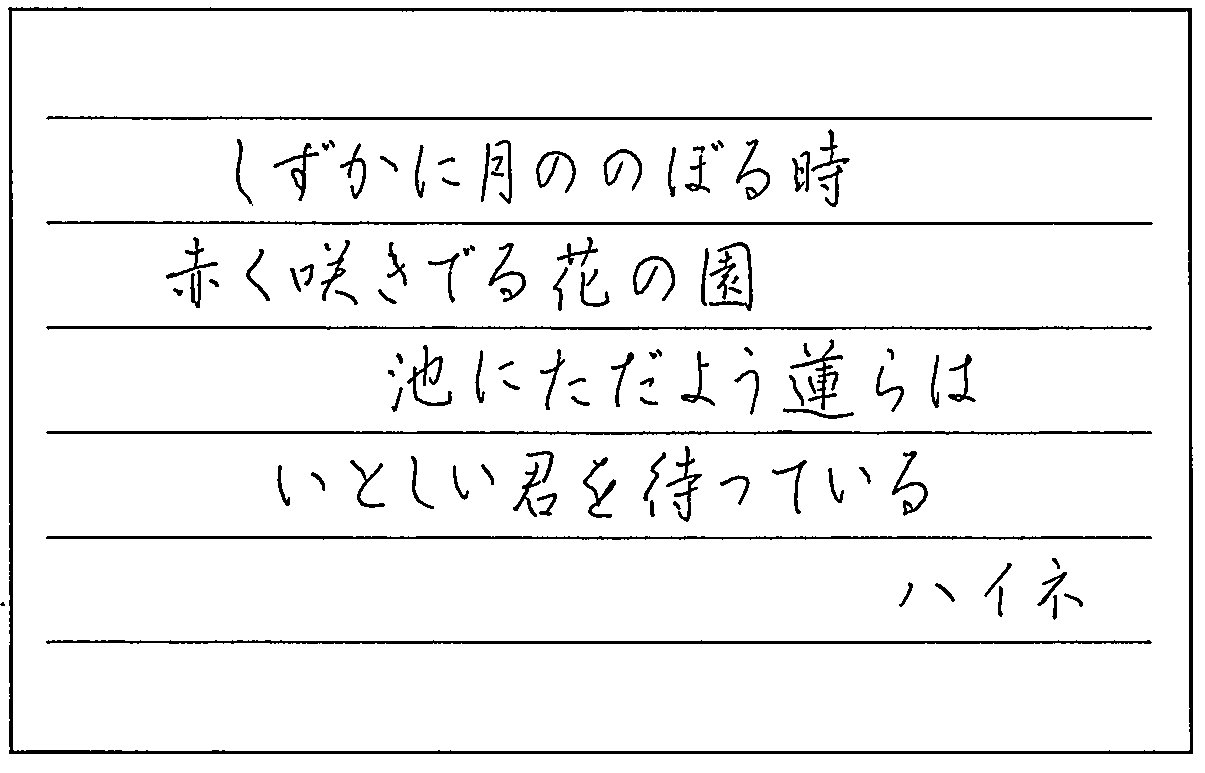 しずかに月ののぼる時
赤く咲きでる花の園
池にただよう蓮らは
いとしい君を待っている
ハイネ